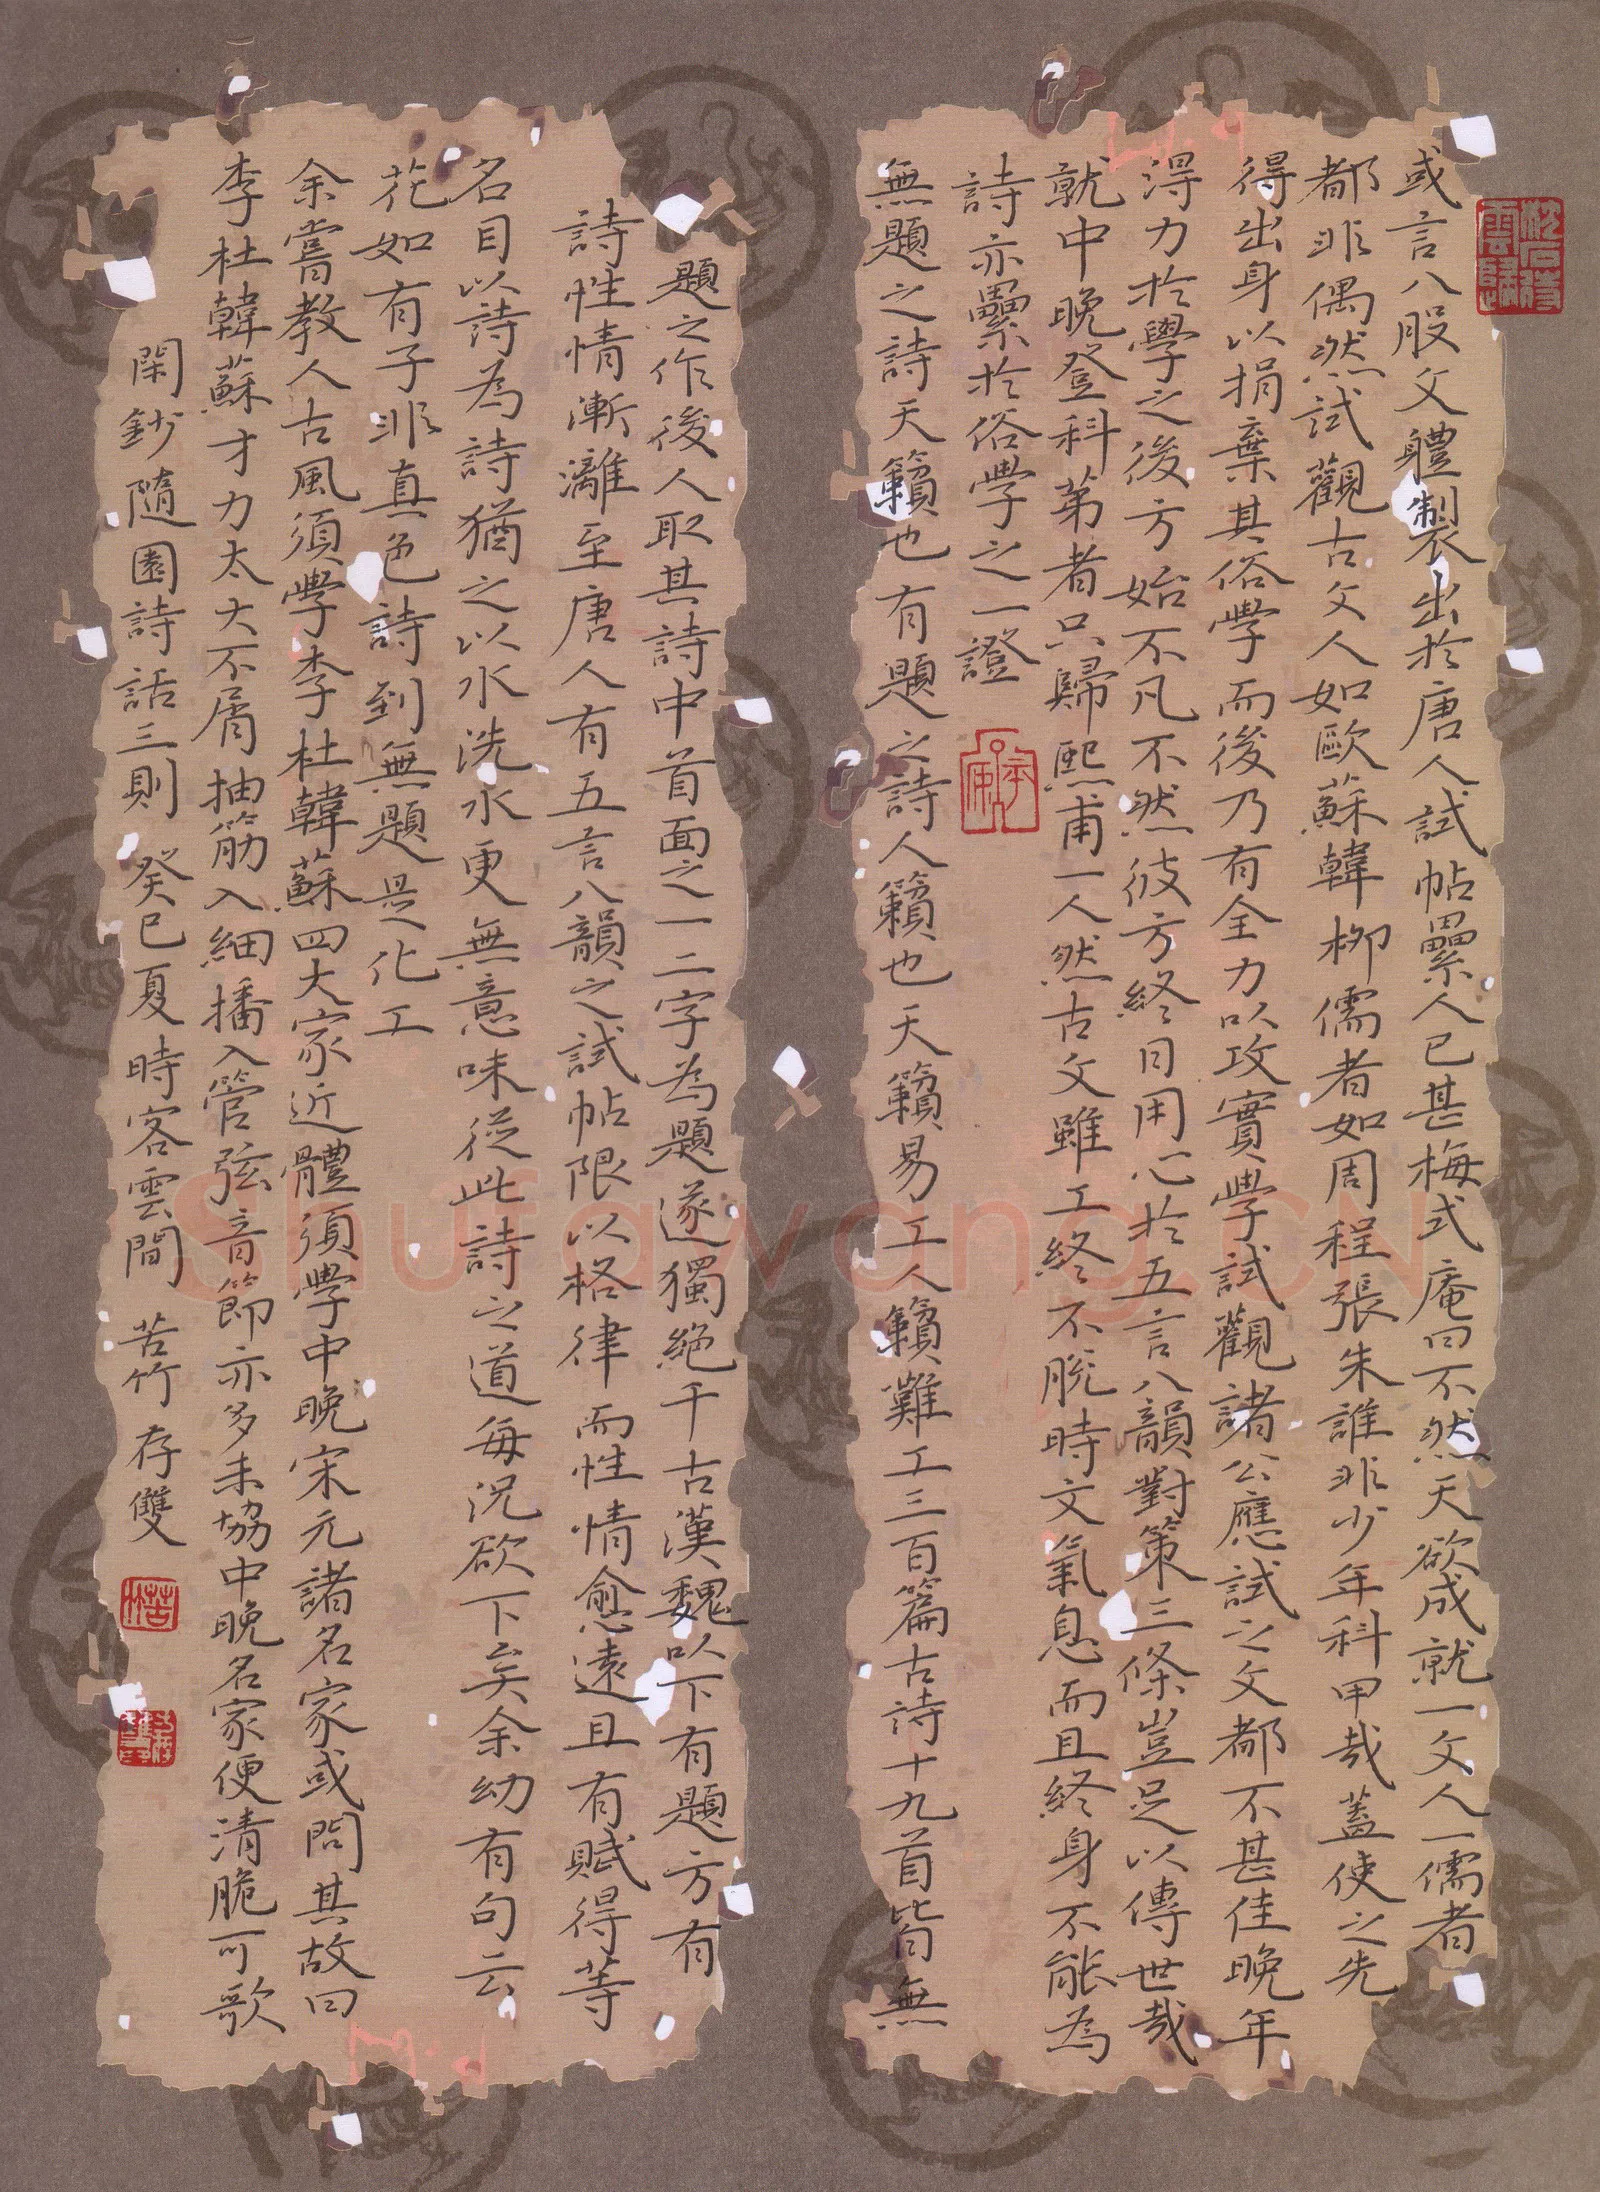 或言八股文體製出於唐人試帖累人已甚梅式庵曰不然天欲成就一文人一儒者
都非偶然試觀古文人如歐蘇韓柳儒者如周程張朱誰非少年科甲哉蓋使之先
得出身以捐棄其俗學而後乃有全力以攻實學試觀諸公應試之文都不甚佳晚年
得力於學之後方始不凡不然彼方終日用心於五言八韻對策三條豈足以傳世哉
就中晚登科第者只歸熙甫一人然古文雖工終不脫時文氣息而且終身不能為
詩亦累於俗學之一證
無題之詩天籟也有題之詩人籟也天籟易工人籟難工三百篇古詩十九首皆無
題之作後人取其詩中首面之一二字為題遂獨絕千古漢魏以下有題方有
詩性情漸漓至唐人有五言八韻之試帖限以格律而性情愈遠且有賦得等
名目以詩為詩猶之以水洗水更無意味從此詩之道每況欲下矣余幼有句云
花如有子非真色詩到無題是化工
余嘗教人古風須學李杜韓蘇四大家近體須學中晚宋元諸名家或問其故曰
李杜韓蘇才力太大不屑抽筋入細播入管弦音節亦多未協中晚名家便清脆可歌
閑鈔隨園詩話三則 癸巳夏時客雲間 苦竹 存雙
Shufawang.CN